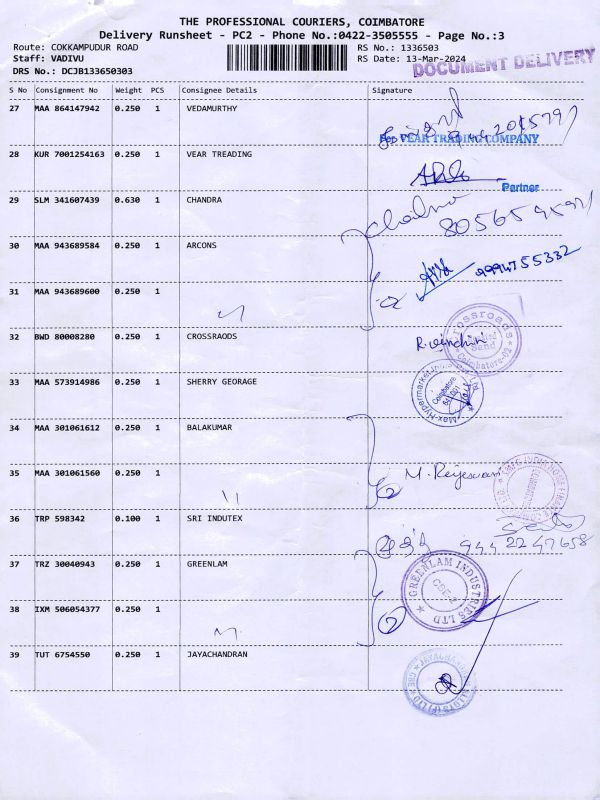 THE PROFESSIONAL COURIERS, COIMBATORE
Delivery Runsheet - PC2 - Phone No.:0422-3505555 - Page No.:3
Route: COKKAMPUDUR ROAD RS No.: 1336503
Staff: VADIVU RS Date: 13-Mar-2024
DOCUMENT DELIVERY
DRS No.: DCJB133650303
S No Consignment No Weight PCS Consignee Details Signature
27 MAA 864147942 0.250 1 VEDAMURTHY
For VEAR TRADING COMPANY
28 KUR 7001254163 0.250 1 VEAR TREADING
Partner
29 SLM 341607439 0.630 1 CHANDRA
30 MAA 943689584 0.250 1 ARCONS
9994755332
31 MAA 943689600 0.250 1
32 BWD 80008280 0.250 1 CROSSRAODS
Crossroads
Coimbatore-02
33 MAA 573914986 0.250 1 SHERRY GEORAGE
Coimbatore
34 MAA 301061612 0.250 1 BALAKUMAR
35 MAA 301061560 0.250 1
36 TRP 598342 0.100 1 SRI INDUTEX
944 22 47658
37 TRZ 30040943 0.250 1 GREENLAM
GREENLAM INDUSTRIES LTD
CBE-2
38 IXM 506054377 0.250 1
39 TUT 6754550 0.250 1 JAYACHANDRAN